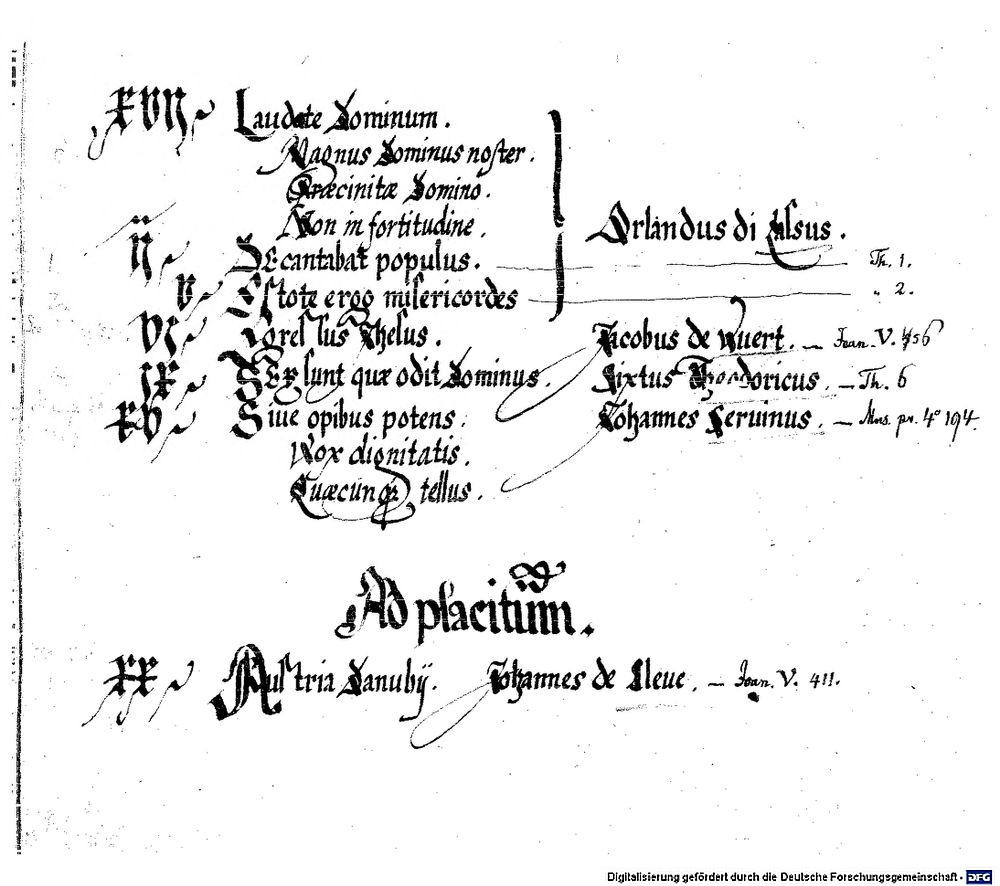 XVII Laudate Dominum.
Magnus Dominus noster.
Præcinitæ Domino.
Non in fortitudine. Orlandus di Lassus.
II Decantabat populus. Th. 1.
V Estote ergo misericordes " 2.
VI Thesus. Jacobus de Wuert. — Joan. V. 456
IX Sex sunt quæ odit Dominus. Sixtus Theodoricus. — Th. 6
XV Siue opibus potens. Johannes Seruinus. — Mus. pr. 4° 194.
Vox dignitatis.
Quæcunqꝫ tellus.
Ad placitum.
XX Austria Danubij. Johannes de Cleue. — Joan. V. 411.
Digitalisierung gefördert durch die Deutsche Forschungsgemeinschaft - DFG